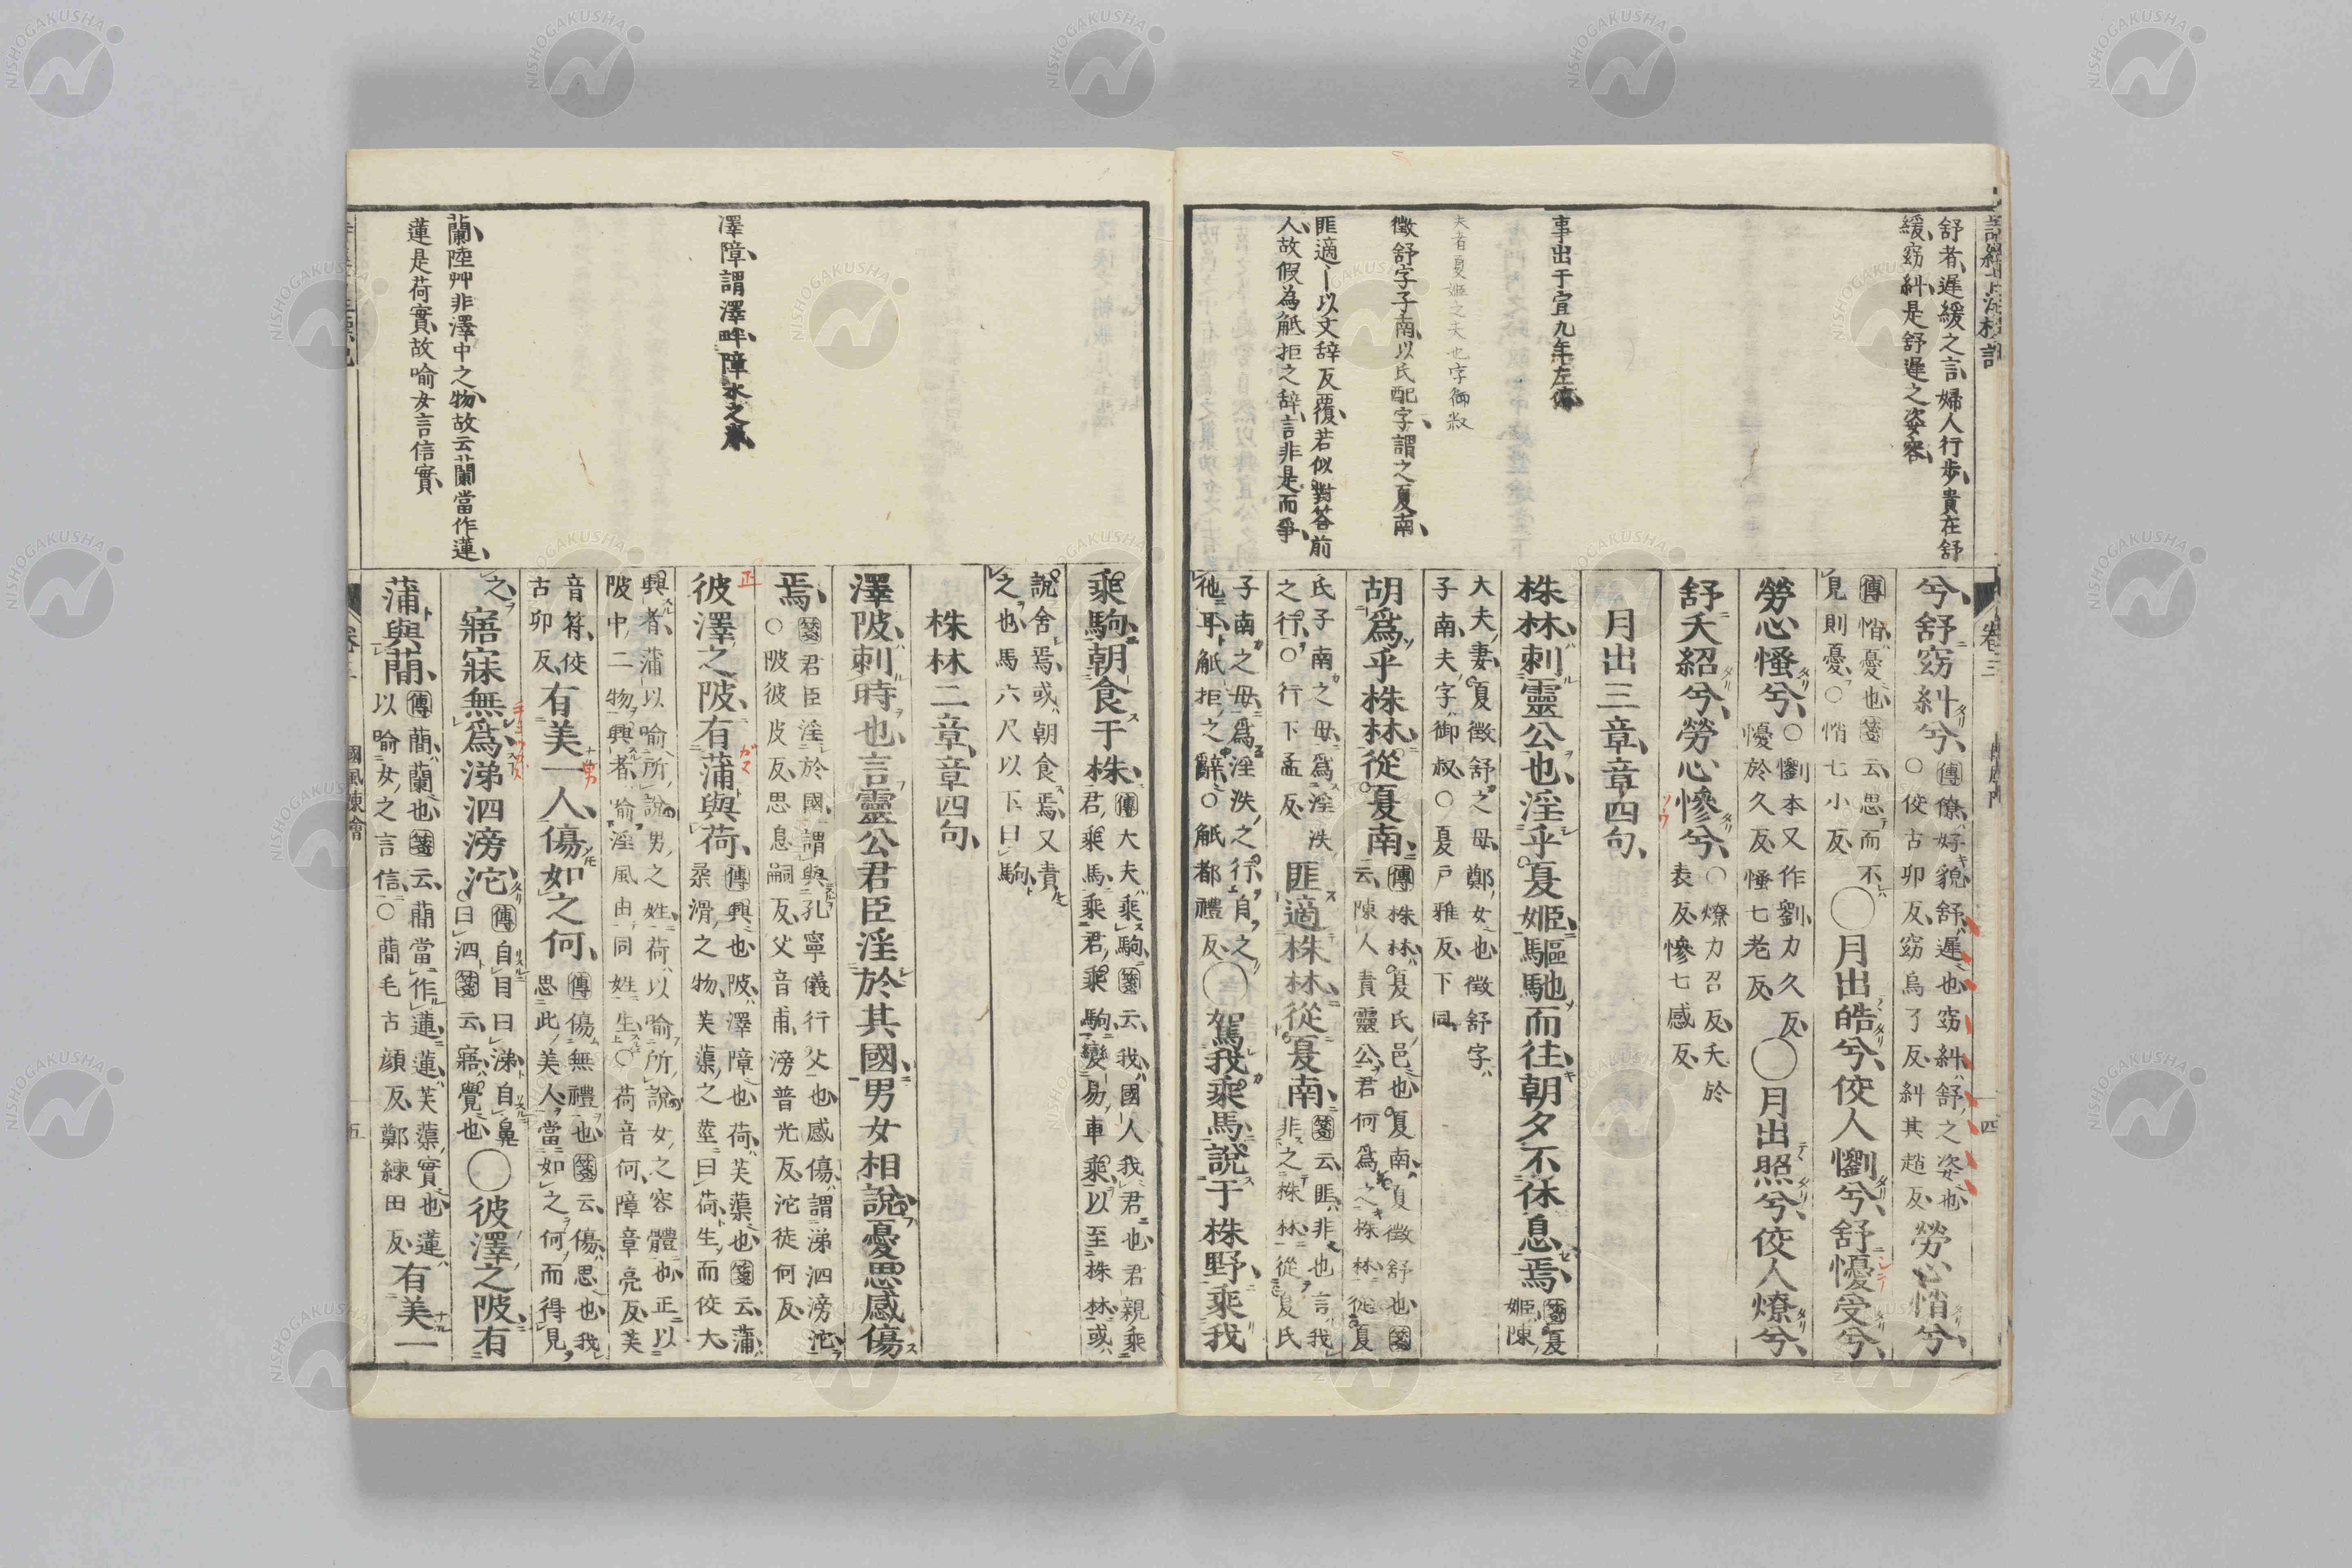 舒者、遲緩之言、婦人行步、貴在舒
緩、窈糾是舒遲之姿容、
事出于宣九年左傳
夫者夏姬之夫也字御叔
徵舒字子南、以氏配字、謂之夏南、
匪適〡以文辞反覆、若似對答前
人、故假為觝拒之辞、言非是而爭、
兮、舒窈糾兮、傳僚、好貌、舒、遲也、窈糾、舒之姿也、
○佼古卯反、窈烏了反、糾其趙反、
勞心悄兮、
傳悄、憂也、箋云、思而不
見則憂、○悄七小反、
○月出皓兮、佼人懰兮、舒懮受兮、
勞心慅兮、
○懰本又作劉、力久反、
懮於久反、慅七老反、
○月出照兮、佼人燎兮、
舒夭紹兮、勞心慘兮、
○燎力召反、夭於
表反、慘七感反、
月出三章、章四句、
株林、刺靈公也、淫乎夏姬、驅馳而往、朝夕不休息焉、
箋夏
姬、陳
大夫妻、夏徵舒之母、鄭女也、徵舒字
子南、夫字御叔、○夏戸雅反、下同、
胡爲乎株林、從夏南、
傳株林、夏氏邑也、夏南、夏徵舒也、箋
云、陳人責靈公、君何爲之株林、從夏
氏子南之母、爲淫泆
之行、○行下孟反、
匪適株林、從夏南、
箋云、匪、非也、言我
非之株林、從夏氏
子南之母、爲淫泆之行、自之
他耳、觝拒之辭、○觝都禮反、
○駕我乘馬、說于株野、乘我
乘駒、朝食于株、
傳大夫乘駒、箋云、我、國人、我君也、君親乘
君乘馬、乘君乘駒、變易車乘、以至株林、或
說舍焉、或朝食焉、又責
之也、馬六尺以下曰駒
株林二章、章四句、
澤陂、刺時也、言靈公君臣淫於其國、男女相說、憂思感傷
焉、
箋君臣淫於國、謂與孔寧儀行父也、感傷、謂涕泗滂沱、
○陂彼皮反、思息嗣反、父音甫、滂普光反、沱徒何反、
彼澤之陂、有蒲與荷、
傳興也、陂、澤障也、荷、芙蕖也、箋云、蒲、
柔滑之物、芙蕖之莖曰荷、生而佼大、
興者、蒲以喻所說男之姓、荷以喻所說女之容體也、正以
陂中二物興者、喻淫風由同姓生、○荷音何、障章亮反、芙
音符、佼
古卯反、
有美一人、傷如之何、
傳傷無禮也、箋云、傷、思也、我
思此美人、當如之何而得見
之、寤寐無爲、涕泗滂沱、
傳自目曰涕、自鼻
曰泗、箋云、寤、覺也、
○彼澤之陂、有
蒲與蕑、
傳蕑、蘭也、箋云、蕑當作蓮、蓮、芙蕖實也、蓮
以喻女之言信、○蕑毛古顔反、鄭練田反、
有美一
澤障、謂澤畔障水之岸、
蘭、陸艸、非澤中之物、故云蘭當作蓮、
蓮是荷實、故喻女言信實、
卷三
國風陳檜
五